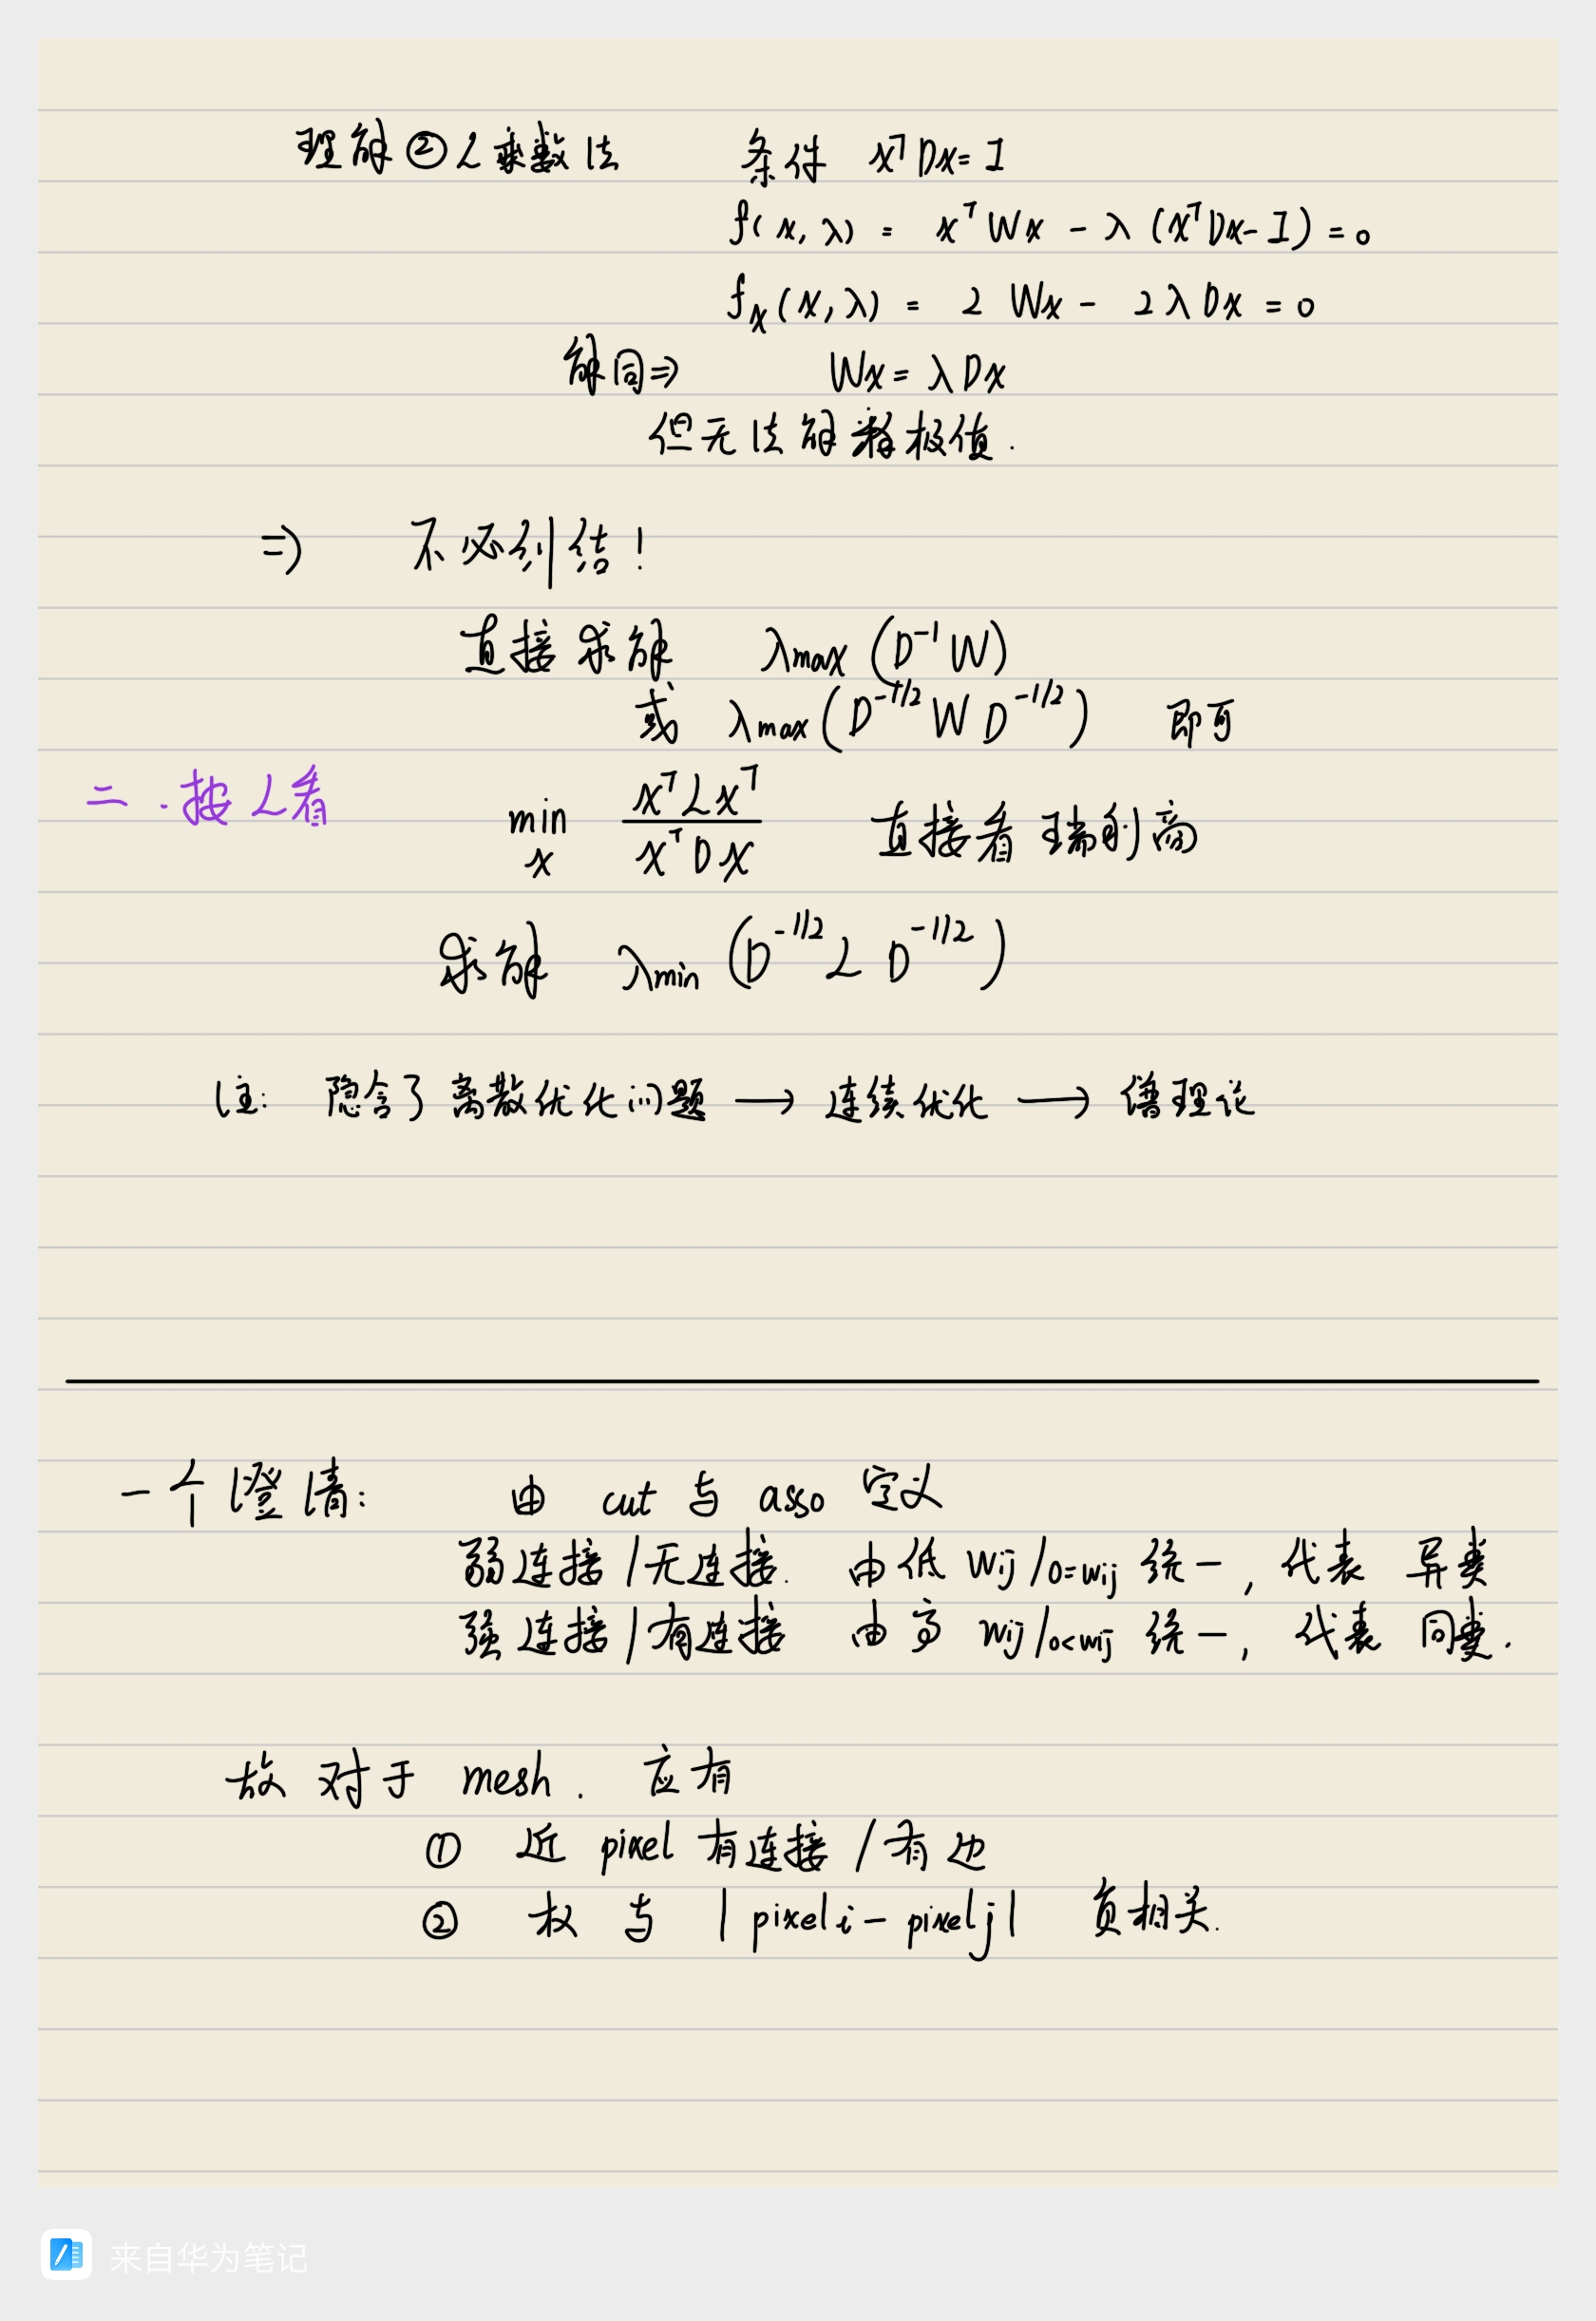 理解②L乘数法 条件 x^T Dx=I
f(x,λ) = x^T Wx - λ(x^T Dx-I)=0
f_x(x,λ) = 2Wx - 2λDx=0
解同⇒ Wx=λDx
但无法解释极值.
⇒ 不必纠结!
直接求解 λmax(D^-1 W)
或 λmax(D^-1/2 W D^-1/2) 即可
二.按L看 min_x x^T L x^T / x^T D x 直接看瑞利商
求解 λmin(D^-1/2 L D^-1/2)
注: 隐含了离散优化问题 → 连续优化 → 谱理论
一个澄清: 由 cut 与 asso 定义
弱连接/无连接. 由低 wij/0=wij 统一, 代表 异类
强连接/有连接 由高 wij/0<wij 统一, 代表 同类.
故对于 mesh. 应有
① 近 pixel 有连接/有边
② 权 与 |pixel i - pixel j| 负相关.
来自华为笔记